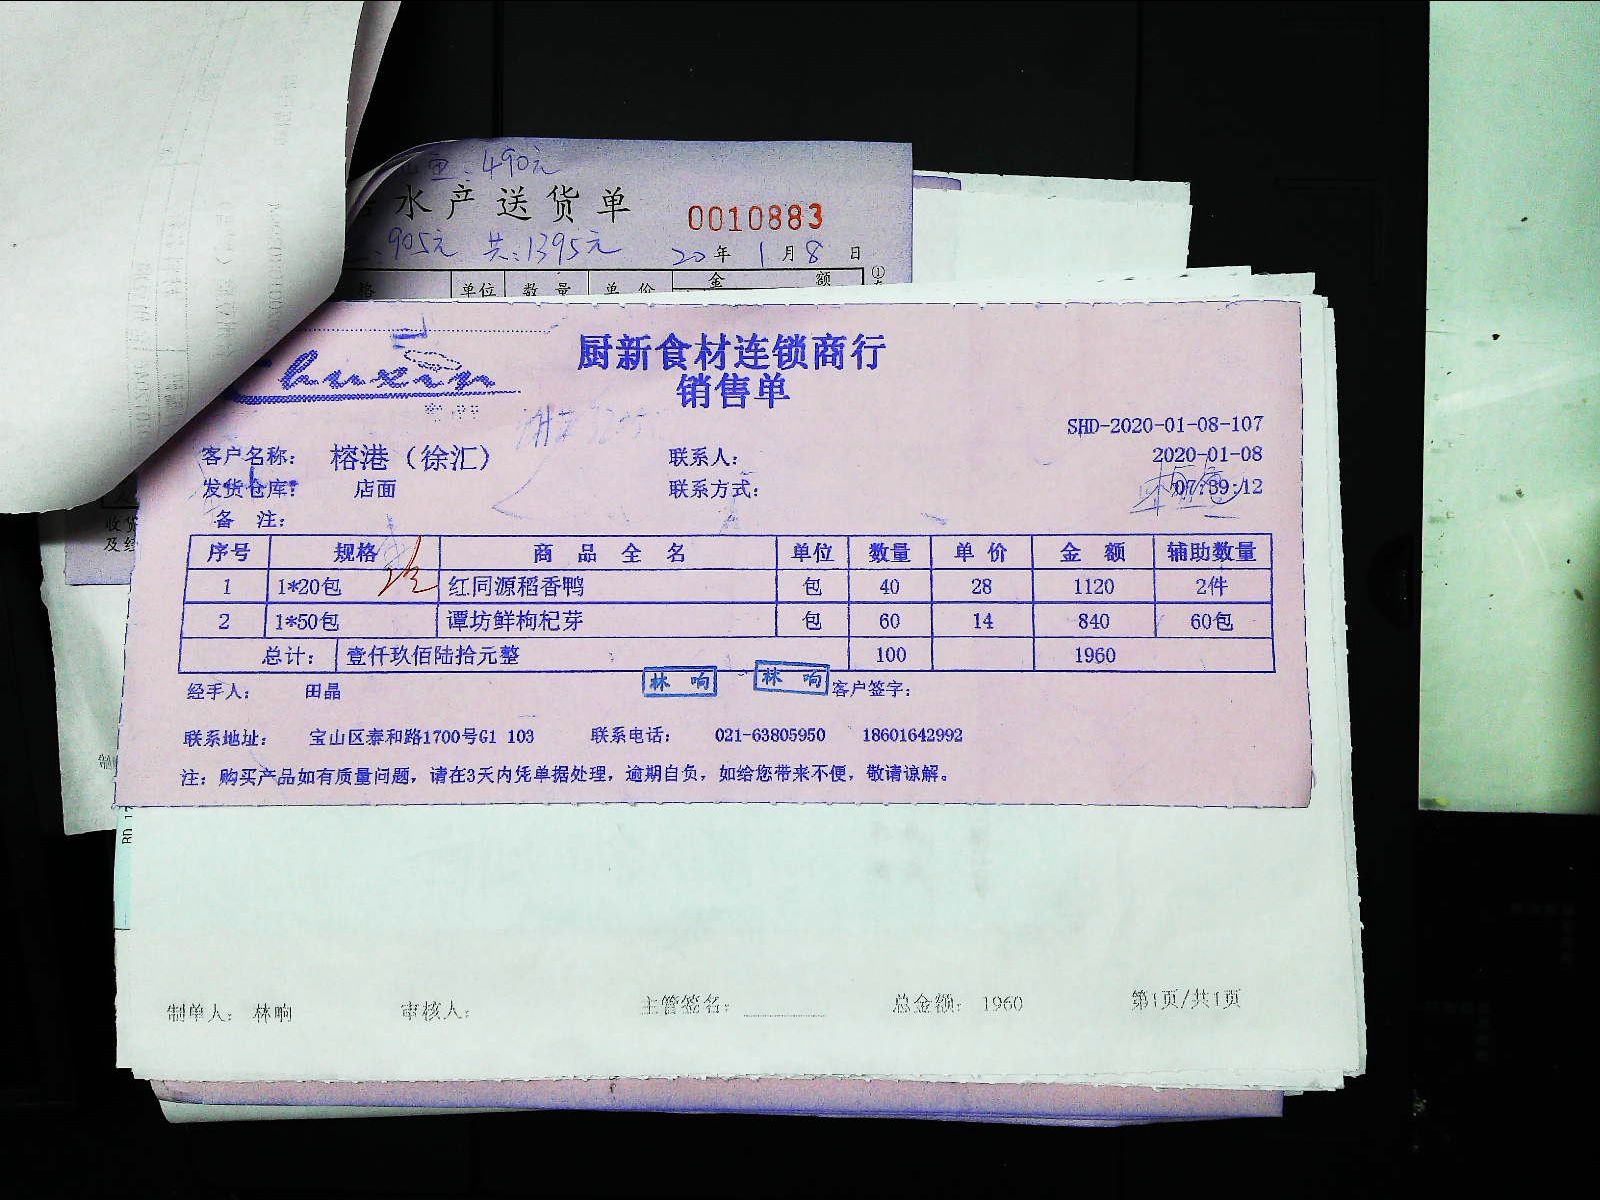 鱼:490元
水产送货单 0010883
905元 共:1395元 20年1月8日
格 单位 数量 单价 金额 ①
厨新食材连锁商行
Chuxin
销售单
SHD-2020-01-08-107
客户名称: 榕港（徐汇） 联系人: 2020-01-08
发货仓库: 店面 联系方式: 07:39:12
备 注:
序号 规格 商品全名 单位 数量 单价 金额 辅助数量
1 1*20包 红同源稻香鸭 包 40 28 1120 2件
2 1*50包 谭坊鲜枸杞芽 包 60 14 840 60包
总计: 壹仟玖佰陆拾元整 100 1960
林响 林响
经手人: 田晶 客户签字:
联系地址: 宝山区泰和路1700号G1 103 联系电话: 021-63805950 18601642992
注: 购买产品如有质量问题, 请在3天内凭单据处理, 逾期自负, 如给您带来不便, 敬请谅解。
收货
及经
制
RD
制单人: 林响 审核人: 主管签名: 总金额: 1960 第1页/共1页